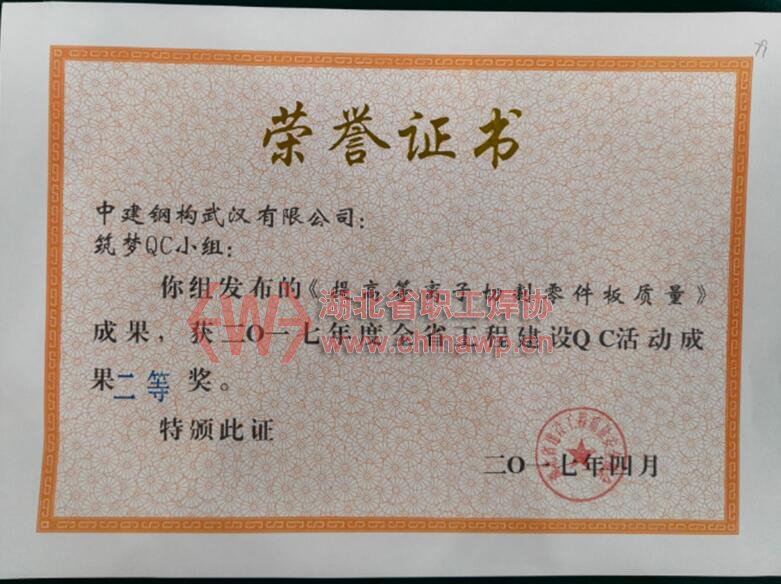 荣誉证书
中建钢构武汉有限公司：
筑梦QC小组：
你组发布的《提高等离子切割零件板质量》
成果，获二〇一七年度全省工程建设QC活动成
果二等奖。
特颁此证
二〇一七年四月
湖北省职工焊协
www.chinawp.cn